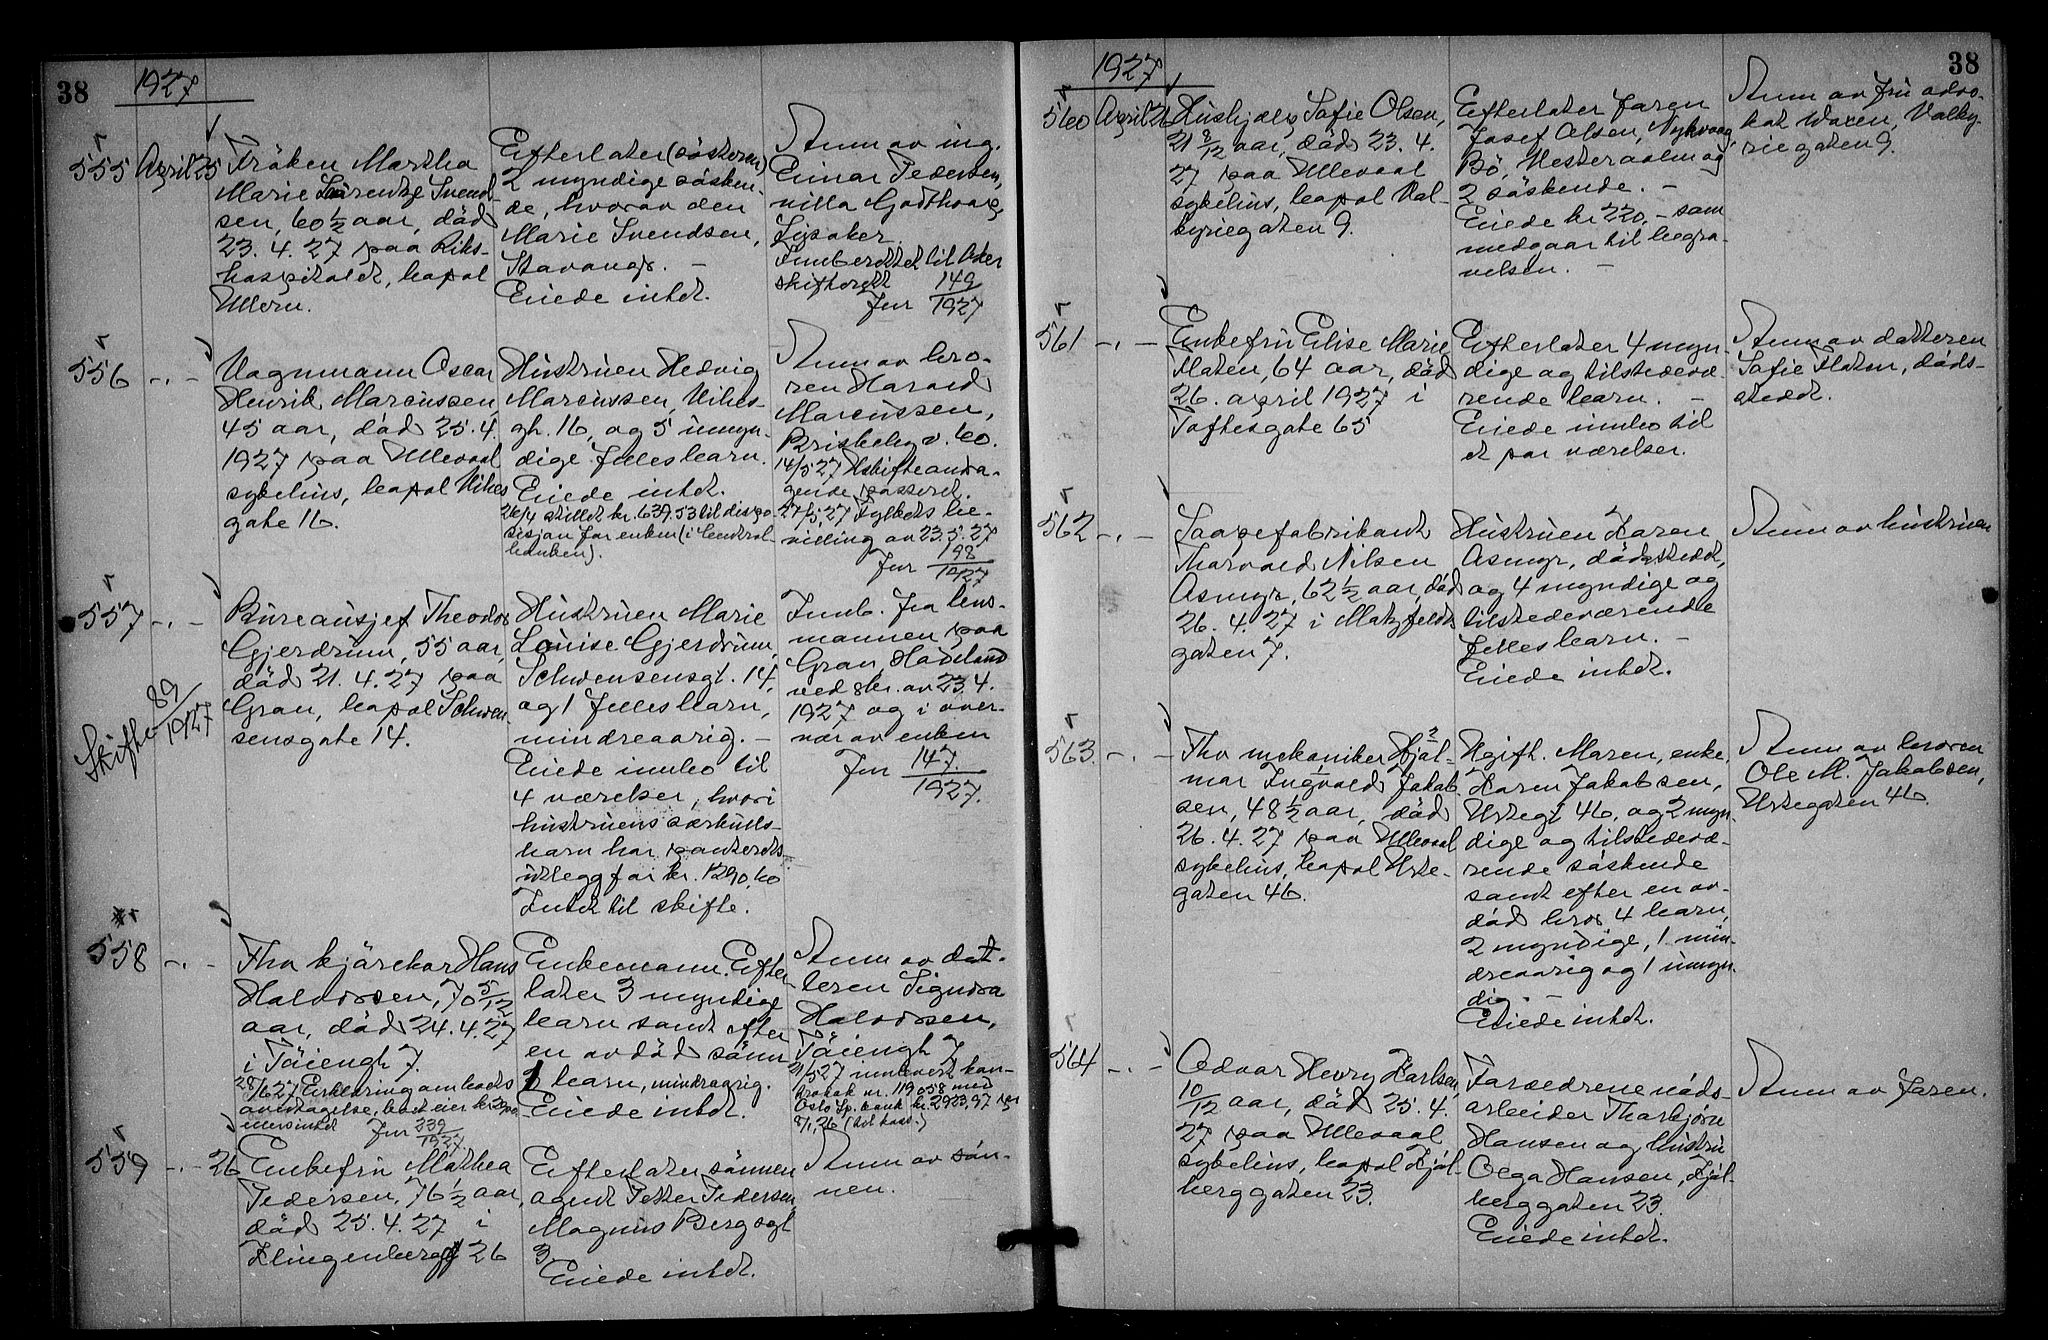 38
1927
555 April 25
Fröken Martha
Marie Lorentze Svend-
sen, 60 1/2 aar, död
23. 4. 27 paa Riks-
hospitalet, bopæl
Ullern.
Efterlater (søsteren)
2 myndige søsken-
de, hvorav den
Marie Svendsen,
Stavanger. —
Eiede intet.
Anm av ing.
Einar Pedersen,
villa Godthaab,
Lysaker.
Innberettet til Aker
skifterett 149
Jnr 1927
556 -.-
Vognmann Oscar
Henrik Marcussen,
45 aar, død 25. 4.
1927 paa Ullevaal
sykehus, bopæl Vibes
gate 16.
Hustruen Hedvig
Marcussen, Vibes-
gt. 16, og 5 umyn-
dige fellesbarn.
Eiede intet.
26/4 stillet kr. 639.53 til dispo-
sisjon for enken (i Central-
banken).
Anm av bro-
ren Harald
Marcussen,
Briskebyv. 60.
14/5 27 Uskifteandra-
gende passeret.
27/5 27 Fylkets be-
villing av 23.5.27
Jnr 198
1927
557 -.-
Skifte 89
1927
Bureausjef Theodor
Gjerdrum, 55 aar,
død 21. 4. 27 paa
Gran, bopæl Schwen-
sensgate 14.
Hustruen Marie
Louise Gjerdrum,
Schwensensgt. 14,
og 1 fellesbarn,
mindreaarig. —
Eiede innbo til
4 værelser, hvori
hustruens særkulls-
barn har panterets-
utlegg for kr. 1290,60
Intet til skifte.
Innb. fra lens-
mannen paa
Gran, Hadeland
ved skr. av 23. 4.
1927 og i over-
vær av enken
Jnr 147
1927.
558 -.-
Fhv kjørekar Hans
Halvorsen, 70 5/12
aar, død 24. 4. 27
i Töiengt 7.
28/6 27 Erklæring om boets
overtagelse, boet eier kr 2900,
ellers intet Jnr 339
1927
Enkemann. Efter-
later 3 myndige
barn samt efter
en avdöd sönn
2 barn, mindreaarig.
Eiede intet.
Anm av dat-
teren Signora
Halvorsen,
Töiengt 7
21/5 27 innlevert kon-
trabok nr. 119058 med
Oslo Sp. bank kr. 2923,97 pr
8/1, 26 (til kass.)
559 -.- 26
Enkefru Mathea
Pedersen, 76 1/2 aar,
död 25. 4. 27 i
Klingenberggt 26
Efterlater sönnen
agent Petter Pedersen,
Magnus Bergsgt
3.
Eiede intet.
Anm av sön-
nen.
38
1927
560 April 26
Hushjelp Sofie Olsen,
21 8/12 aar, död 23. 4.
27 paa Ullevaal
sykehus, bopæl Val-
kyriegaten 9.
Efterlater faren
Josef Olsen, Nykvaag,
Bö, Vesteraalen og
2 söskende. —
Eiede kr 220,- som
medgaar til begra-
velsen. —
Anm av fru advo-
kat Waxen, Valky-
riegaten 9.
561 -.-
Enkefru Elise Marie
Flaten, 64 aar, död
26. april 1927 i
Toftesgate 65
Efterlater 4 myn-
dige og tilstedevæ-
rende barn. —
Eiede innbo til
et par værelser.
Anm av datteren
Sofie Flaten, döds-
stedet.
562 -.-
Saapefabrikant
Thorvald Nilsen
Asmyr, 62 1/2 aar, död
26. 4. 27 i Motzfeldts
gaten 7.
Hustruen Karen
Asmyr, dödsstedet,
og 4 myndige og
tilstedeværende
fellesbarn. —
Eiede intet.
Anm av hustruen
563. -.-
Fhv mekaniker Hjal-
mar Ingvald Jakob-
sen, 48 1/2 aar, död
26. 4. 27 paa Ullevaal
sykehus, bopæl Urte-
gaten 46.
Ugift. Moren, enke,
Karen Jakobsen,
Urtegt 46, og 2 myn-
dige og tilstedevæ-
rende söskende
samt efter en av-
död bror 4 barn,
2 myndige, 1 min-
dreaarig og 1 umyn-
dig. —
Eiede intet.
Anm av broren
Ole M. Jakobsen,
Urtegaten 46.
564 -.-
Odvar Henry Karlsen,
10/12 aar, död 25. 4.
27 paa Ullevaal
sykehus, bopæl Kjöl-
berggaten 23.
Foreldrene nöds-
arbeider Thorbjörn
Hansen og hustru
Olga Hansen, Kjöl-
berggaten 23.
Eiede intet.
Anm av faren.